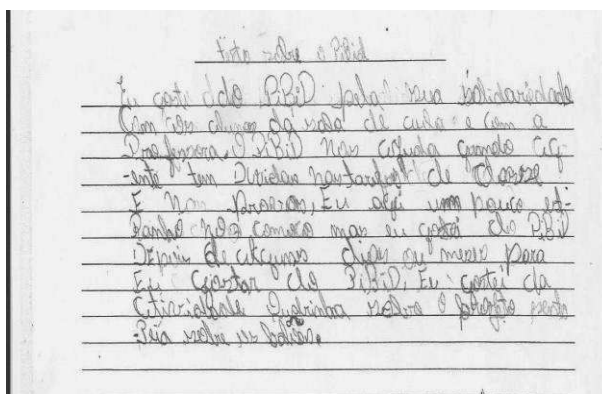 sobre o Pibid
Eu gosto do PiBiD pela sua solidariedade
Com os alunos da sala de aula e com a
Professora. O PiBiD nos ajuda quando a g-
ente tem Duvidas nas tarefas de Classe
E nas provas, Eu achei um pouco est-
ranho no começo mas eu gostei do PiBiD
Depois de alguns dias ou meses para
Eu gostar do PiBiD, Eu gostei da
Atividade Quadrinha sobre o
sobre os